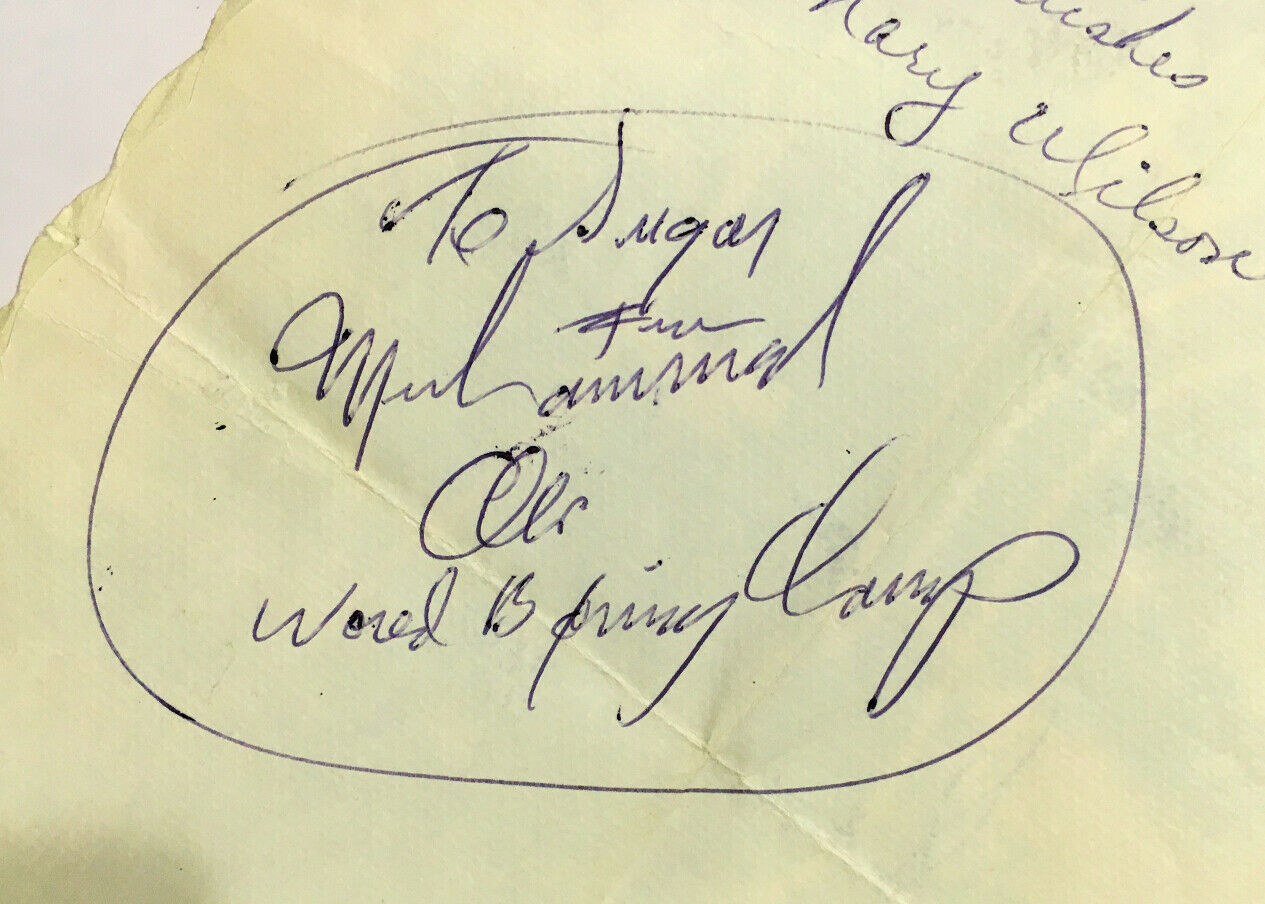 wishes
Mary Wilson
To Sugar
From
Muhammad
Ali
World Boxing Champ